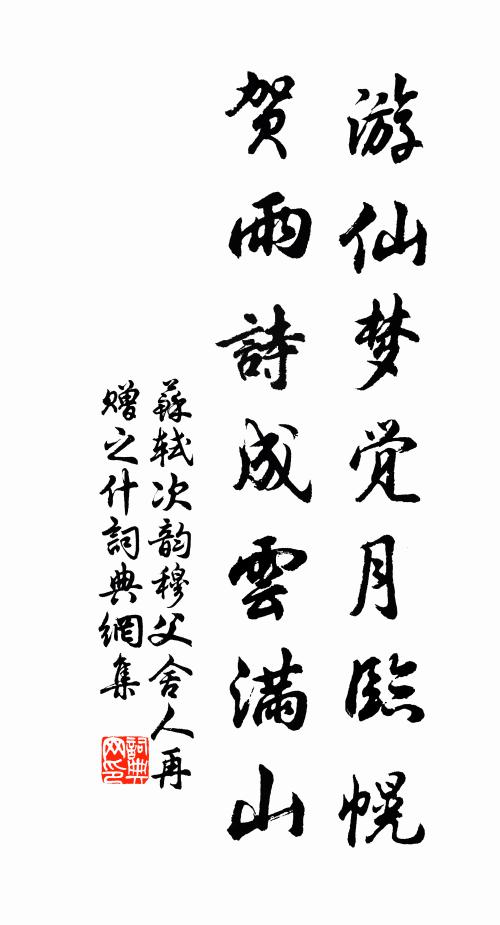 游仙梦觉月臨幌
贺雨詩成雲满山
蘇轼次韵穆父舍人再
赠之什詞典網集
詞典
网印